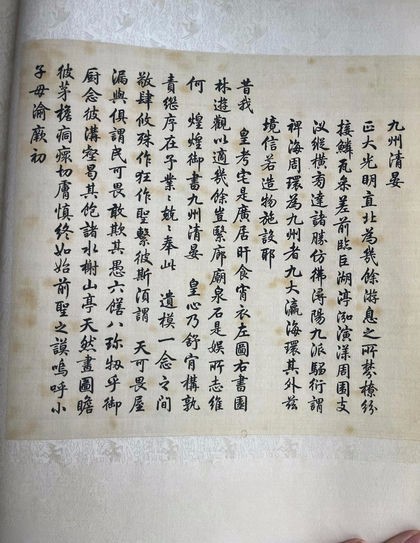 九州清晏
正大光明直北為幾餘游息之所棼橑紛
接鱗瓦參差前臨巨湖渟泓演漾周圍支
汊縱橫旁達諸勝仿彿潯陽九派騶衍謂
裨海周環為九州者九大瀛海環其外茲
境信若造物施設耶
昔我 皇考宅是廣居旰食宵衣左圖右書園
林遊觀以適幾餘豈繫廊廟泉石是娛所志維
何 煌煌御書九州清晏 皇心乃舒肯構孰
責繼序在予業〻兢〻奉此 遺模一念之間
敬肆攸殊作狂作聖繫彼斯須謂 天可畏屋
漏與俱謂民可畏敢欺其愚六饍八珎牣乎御
厨念彼溝壑曷其飽諸水榭山亭天然畫圖瞻
彼茅檐痌瘝切膚慎終如始前聖之謨嗚呼小
子毋渝厥初